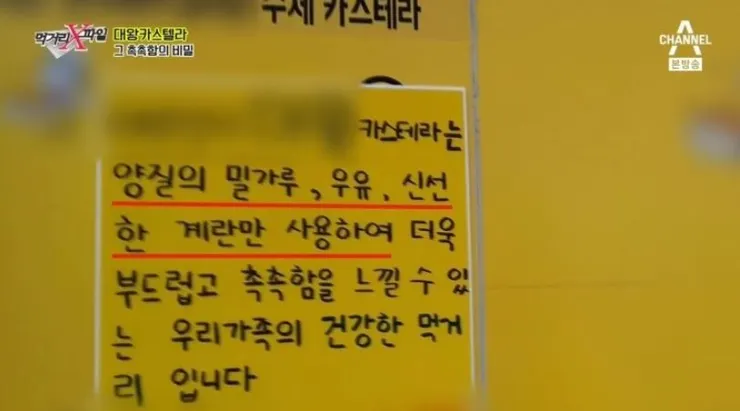 먹거리X파일
대왕카스텔라
그 촉촉함의 비밀
수제 카스테라
CHANNEL A
본방송
카스테라는
양질의 밀가루, 우유, 신선
한 계란만 사용하여 더욱
부드럽고 촉촉함을 느낄 수 있
는 우리가족의 건강한 먹거
리 입니다